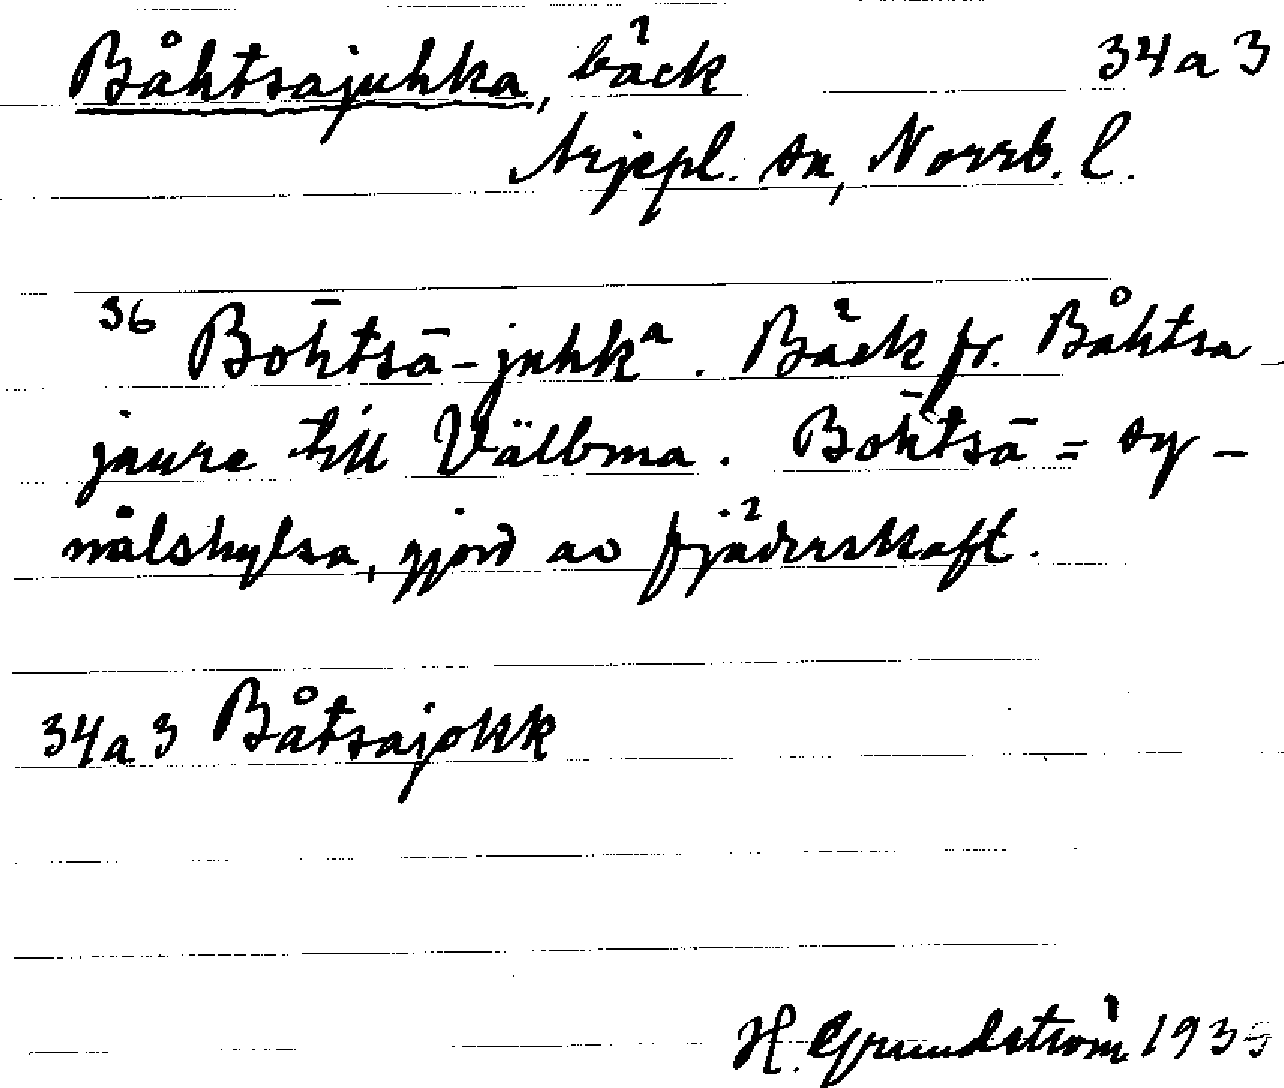 Båhtsajuhka, bäck 34a3
Arjepl. sn, Norrb. l.
36 Boh̄tsā-juhkᵃ. Bäck fr. Båhtsa-
jaure till Välbma. Boh̄tsā = sy-
nålshylsa, gjord av fjäderskaft.
34a3 Båtsajokk
H. Grundström 1935